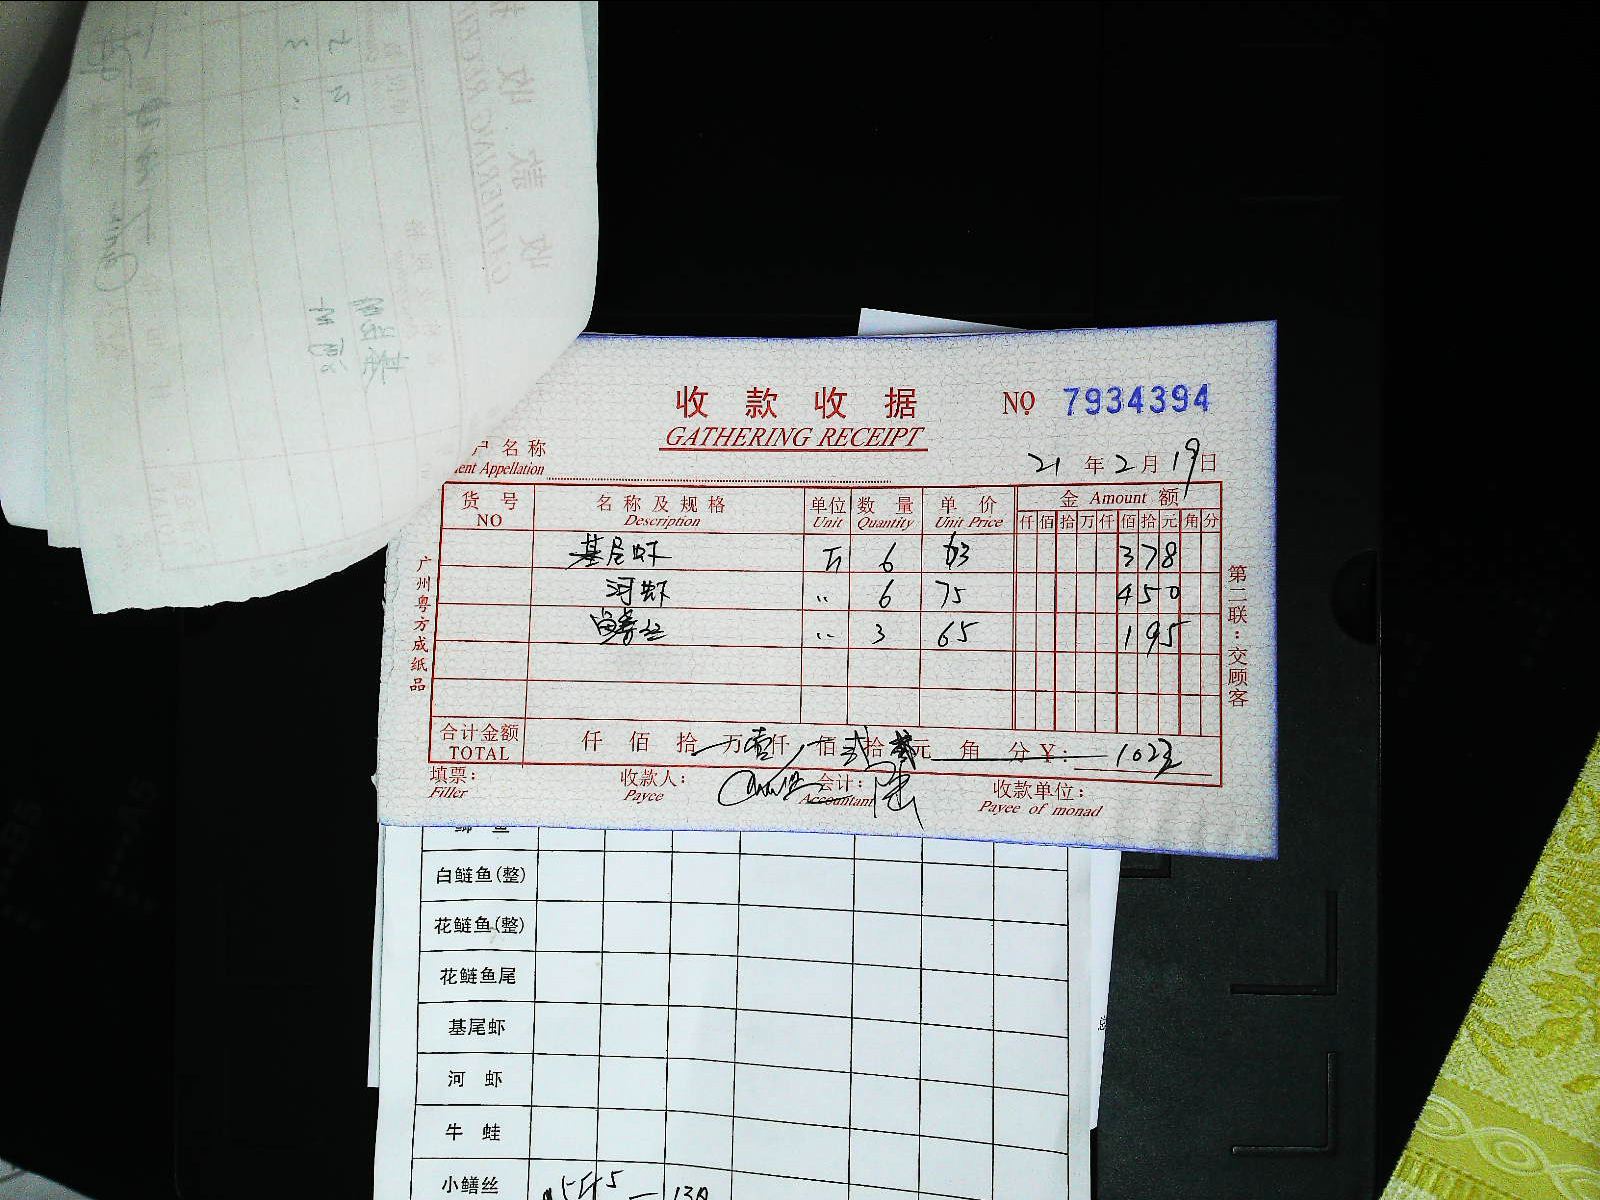 收款收据
GATHERING RECEIPT
NO 7934394
户名称
ent Appellation
21年2月19日
货号 名称及规格 单位 数量 单价 金 Amount 额
NO Description Unit Quantity Unit Price 仟佰拾万仟佰拾元角分
基尾虾 斤 6 63 378
河虾 〃 6 75 450
鳝丝 〃 3 65 195
合计金额 仟 佰 拾 万壹仟 佰贰拾叁元 角 分¥: 1023
TOTAL
填票: 收款人: 会计: 收款单位:
Filler Payee Accountant Payee of monad
广州粤方成纸品
第二联:交顾客
白鲢鱼(整)
花鲢鱼(整)
花鲢鱼尾
基尾虾
河虾
牛蛙
小鳝丝